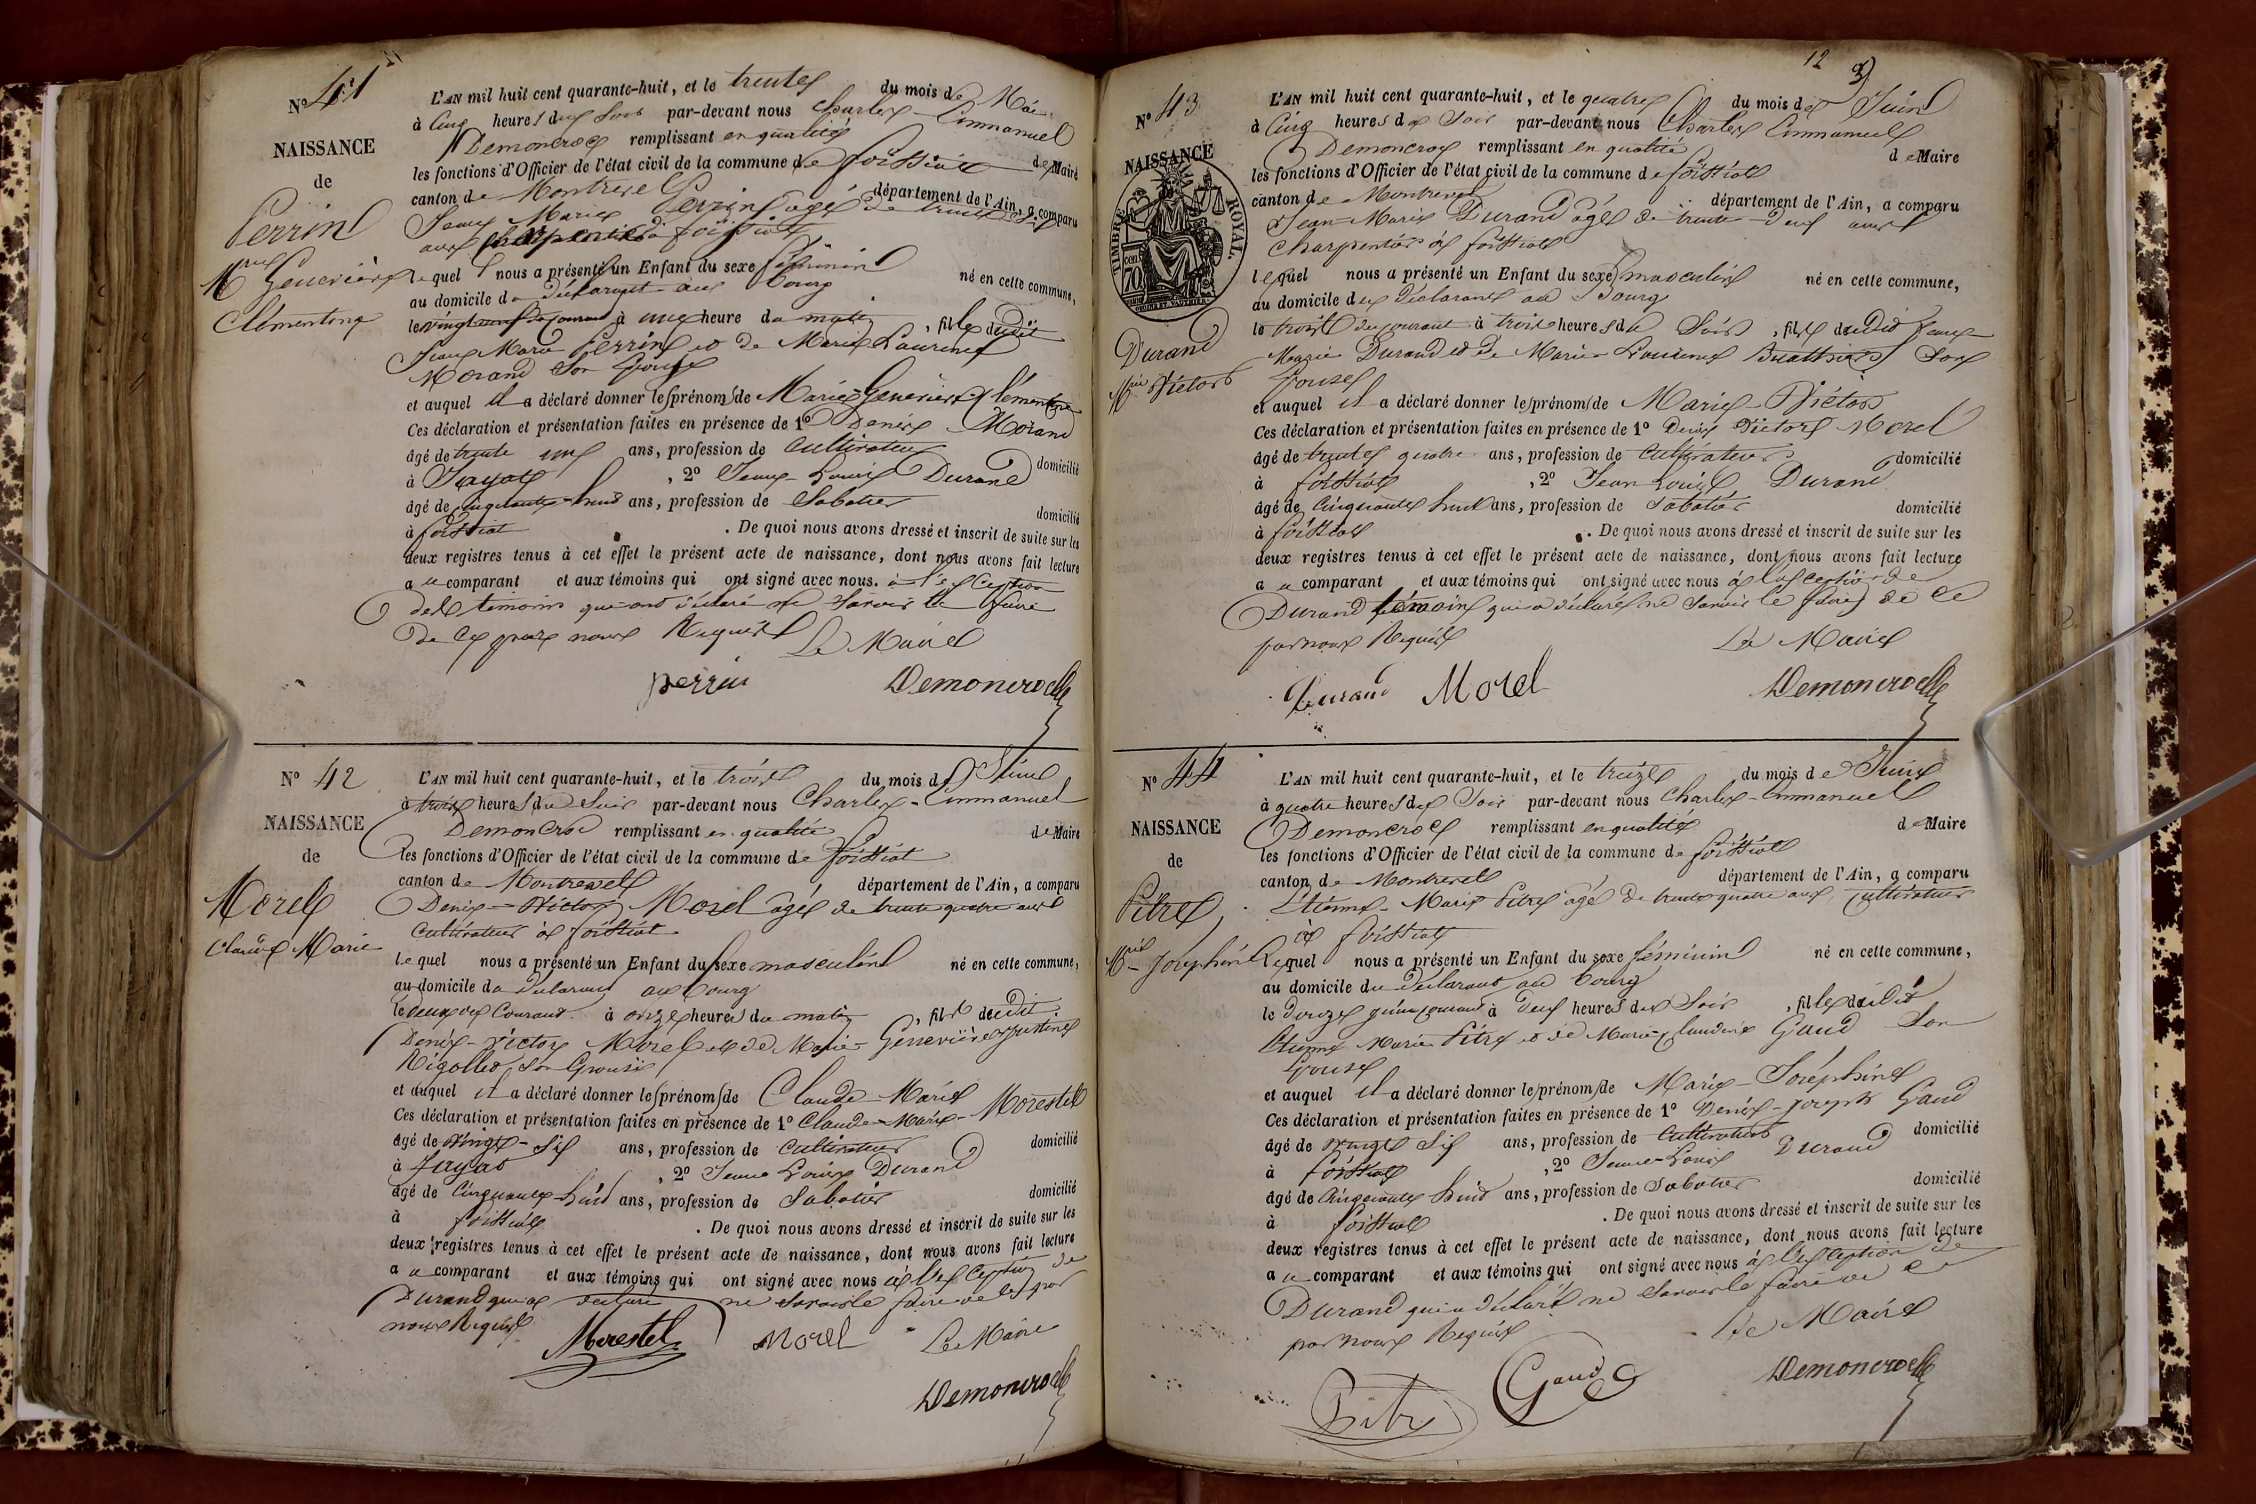 Nº 41
NAISSANCE
de
Perrin
Mie Geneviève
Clémentine
L'AN mil huit cent quarante-huit, et le trente du mois de Mai
à cinq heures du soir par-devant nous Charles-Emmanuel
Demoncroc remplissant en qualité de Maire
les fonctions d'Officier de l'état civil de la commune de foissiat
canton de Montrevel département de l'Ain, a comparu
Jean Marie Perrin agé de trente
ans à foissiat
lequel nous a présenté un Enfant du sexe féminin né en cette commune,
au domicile du déclarant au bourg
le vingt neuf du courant à une heure du matin, fille dudit
Jean Marie Perrin et de Marie Laurence
Morand son épouse
et auquel il a déclaré donner les prénoms de Marie-Geneviève Clémentine
Ces déclaration et présentation faites en présence de 1º Denis Morand
âgé de trente ans, profession de cultivateur domicilié
à Jayat, 2º Jean-Louis Durand
âgé de cinquante-huit ans, profession de Sabotier domicilié
à foissiat. De quoi nous avons dressé et inscrit de suite sur les
deux registres tenus à cet effet le présent acte de naissance, dont nous avons fait lecture
au comparant et aux témoins qui ont signé avec nous. à l'exception
des témoins qui ont déclaré ne savoir le faire
de ce par nous Requis Le Maire
perrin Demoncroc
Nº 42
NAISSANCE
de
Morel
Claude Marie
L'AN mil huit cent quarante-huit, et le trois du mois de Juin
à trois heures du soir par-devant nous Charles-Emmanuel
Demoncroc remplissant en qualité de Maire
les fonctions d'Officier de l'état civil de la commune de foissiat
canton de Montrevel département de l'Ain, a comparu
Denis-Victor Morel agé de trente quatre ans
cultivateur à foissiat
lequel nous a présenté un Enfant du sexe masculin né en cette commune,
au domicile du déclarant au bourg
le deux du Courant à onze heures du matin, fils dudit
Denis-Victor Morel et de Marie-Geneviève Justine
Rigollet son Epouse
et auquel il a déclaré donner les prénoms de Claude-Marie
Ces déclaration et présentation faites en présence de 1º Claude-Marie-Morestel
âgé de vingt-six ans, profession de cultivateur domicilié
à Jayat, 2º Jean Louis Durand
âgé de Cinquante-huit ans, profession de Sabotier domicilié
à foissiat. De quoi nous avons dressé et inscrit de suite sur les
deux registres tenus à cet effet le présent acte de naissance, dont nous avons fait lecture
au comparant et aux témoins qui ont signé avec nous à l'exception de
Durand qui a déclaré ne savoir le faire de ce par
nous Requis
Morestel Morel Le Maire
Demoncroc
12
Nº 43
NAISSANCE
TIMBRE ROYAL.
70
Durand
Mie Victor
L'AN mil huit cent quarante-huit, et le quatre du mois de Juin
à Cinq heures du Soir par-devant nous Charles Emmanuel
Demoncroc remplissant en qualité de Maire
les fonctions d'Officier de l'état civil de la commune de foissiat
canton de Montrevel département de l'Ain, a comparu
Jean-Marie Durand âgé de trente-deux ans
Charpentier à foissiat
lequel nous a présenté un Enfant du sexe masculin né en cette commune,
au domicile du déclarant au Bourg
le trois du courant à trois heures du Soir, fils dudit Jean-
Marie Durand et de Marie-Louise son
Epouse
et auquel il a déclaré donner les prénoms de Marie-Victor
Ces déclaration et présentation faites en présence de 1º Denis Victor Morel
âgé de trente quatre ans, profession de cultivateur domicilié
à foissiat, 2º Jean Louis Durand
âgé de Cinquante huit ans, profession de Sabotier domicilié
à foissiat. De quoi nous avons dressé et inscrit de suite sur les
deux registres tenus à cet effet le présent acte de naissance, dont nous avons fait lecture
au comparant et aux témoins qui ont signé avec nous à l'exception de
Durand témoin qui a déclaré ne savoir le faire de ce
par nous Requis Le Maire
Durand Morel Demoncroc
Nº 44
NAISSANCE
de
Pitre
Mie Joséphine
L'AN mil huit cent quarante-huit, et le treize du mois de Juin
à quatre heures du Soir par-devant nous Charles-Emmanuel
Demoncroc remplissant en qualité de Maire
les fonctions d'Officier de l'état civil de la commune de foissiat
canton de Montrevel département de l'Ain, a comparu
Etienne-Marie Pitre agé de trente quatre ans, cultivateur
à foissiat
lequel nous a présenté un Enfant du sexe féminin né en cette commune,
au domicile du déclarant au bourg
le douze du courant à deux heures du Soir, fille dudit
Etienne Marie Pitre et de Marie-Claudine Gaud son
Epouse
et auquel il a déclaré donner les prénoms de Marie-Joséphine
Ces déclaration et présentation faites en présence de 1º Denis-Joseph Gaud
âgé de vingt six ans, profession de cultivateur domicilié
à foissiat, 2º Jean-Louis Durand
âgé de Cinquante huit ans, profession de Sabotier domicilié
à foissiat. De quoi nous avons dressé et inscrit de suite sur les
deux registres tenus à cet effet le présent acte de naissance, dont nous avons fait lecture
au comparant et aux témoins qui ont signé avec nous à l'exception de
Durand qui a déclaré ne savoir le faire de ce
par nous Requis Le Maire
Pitre Gaud Demoncroc